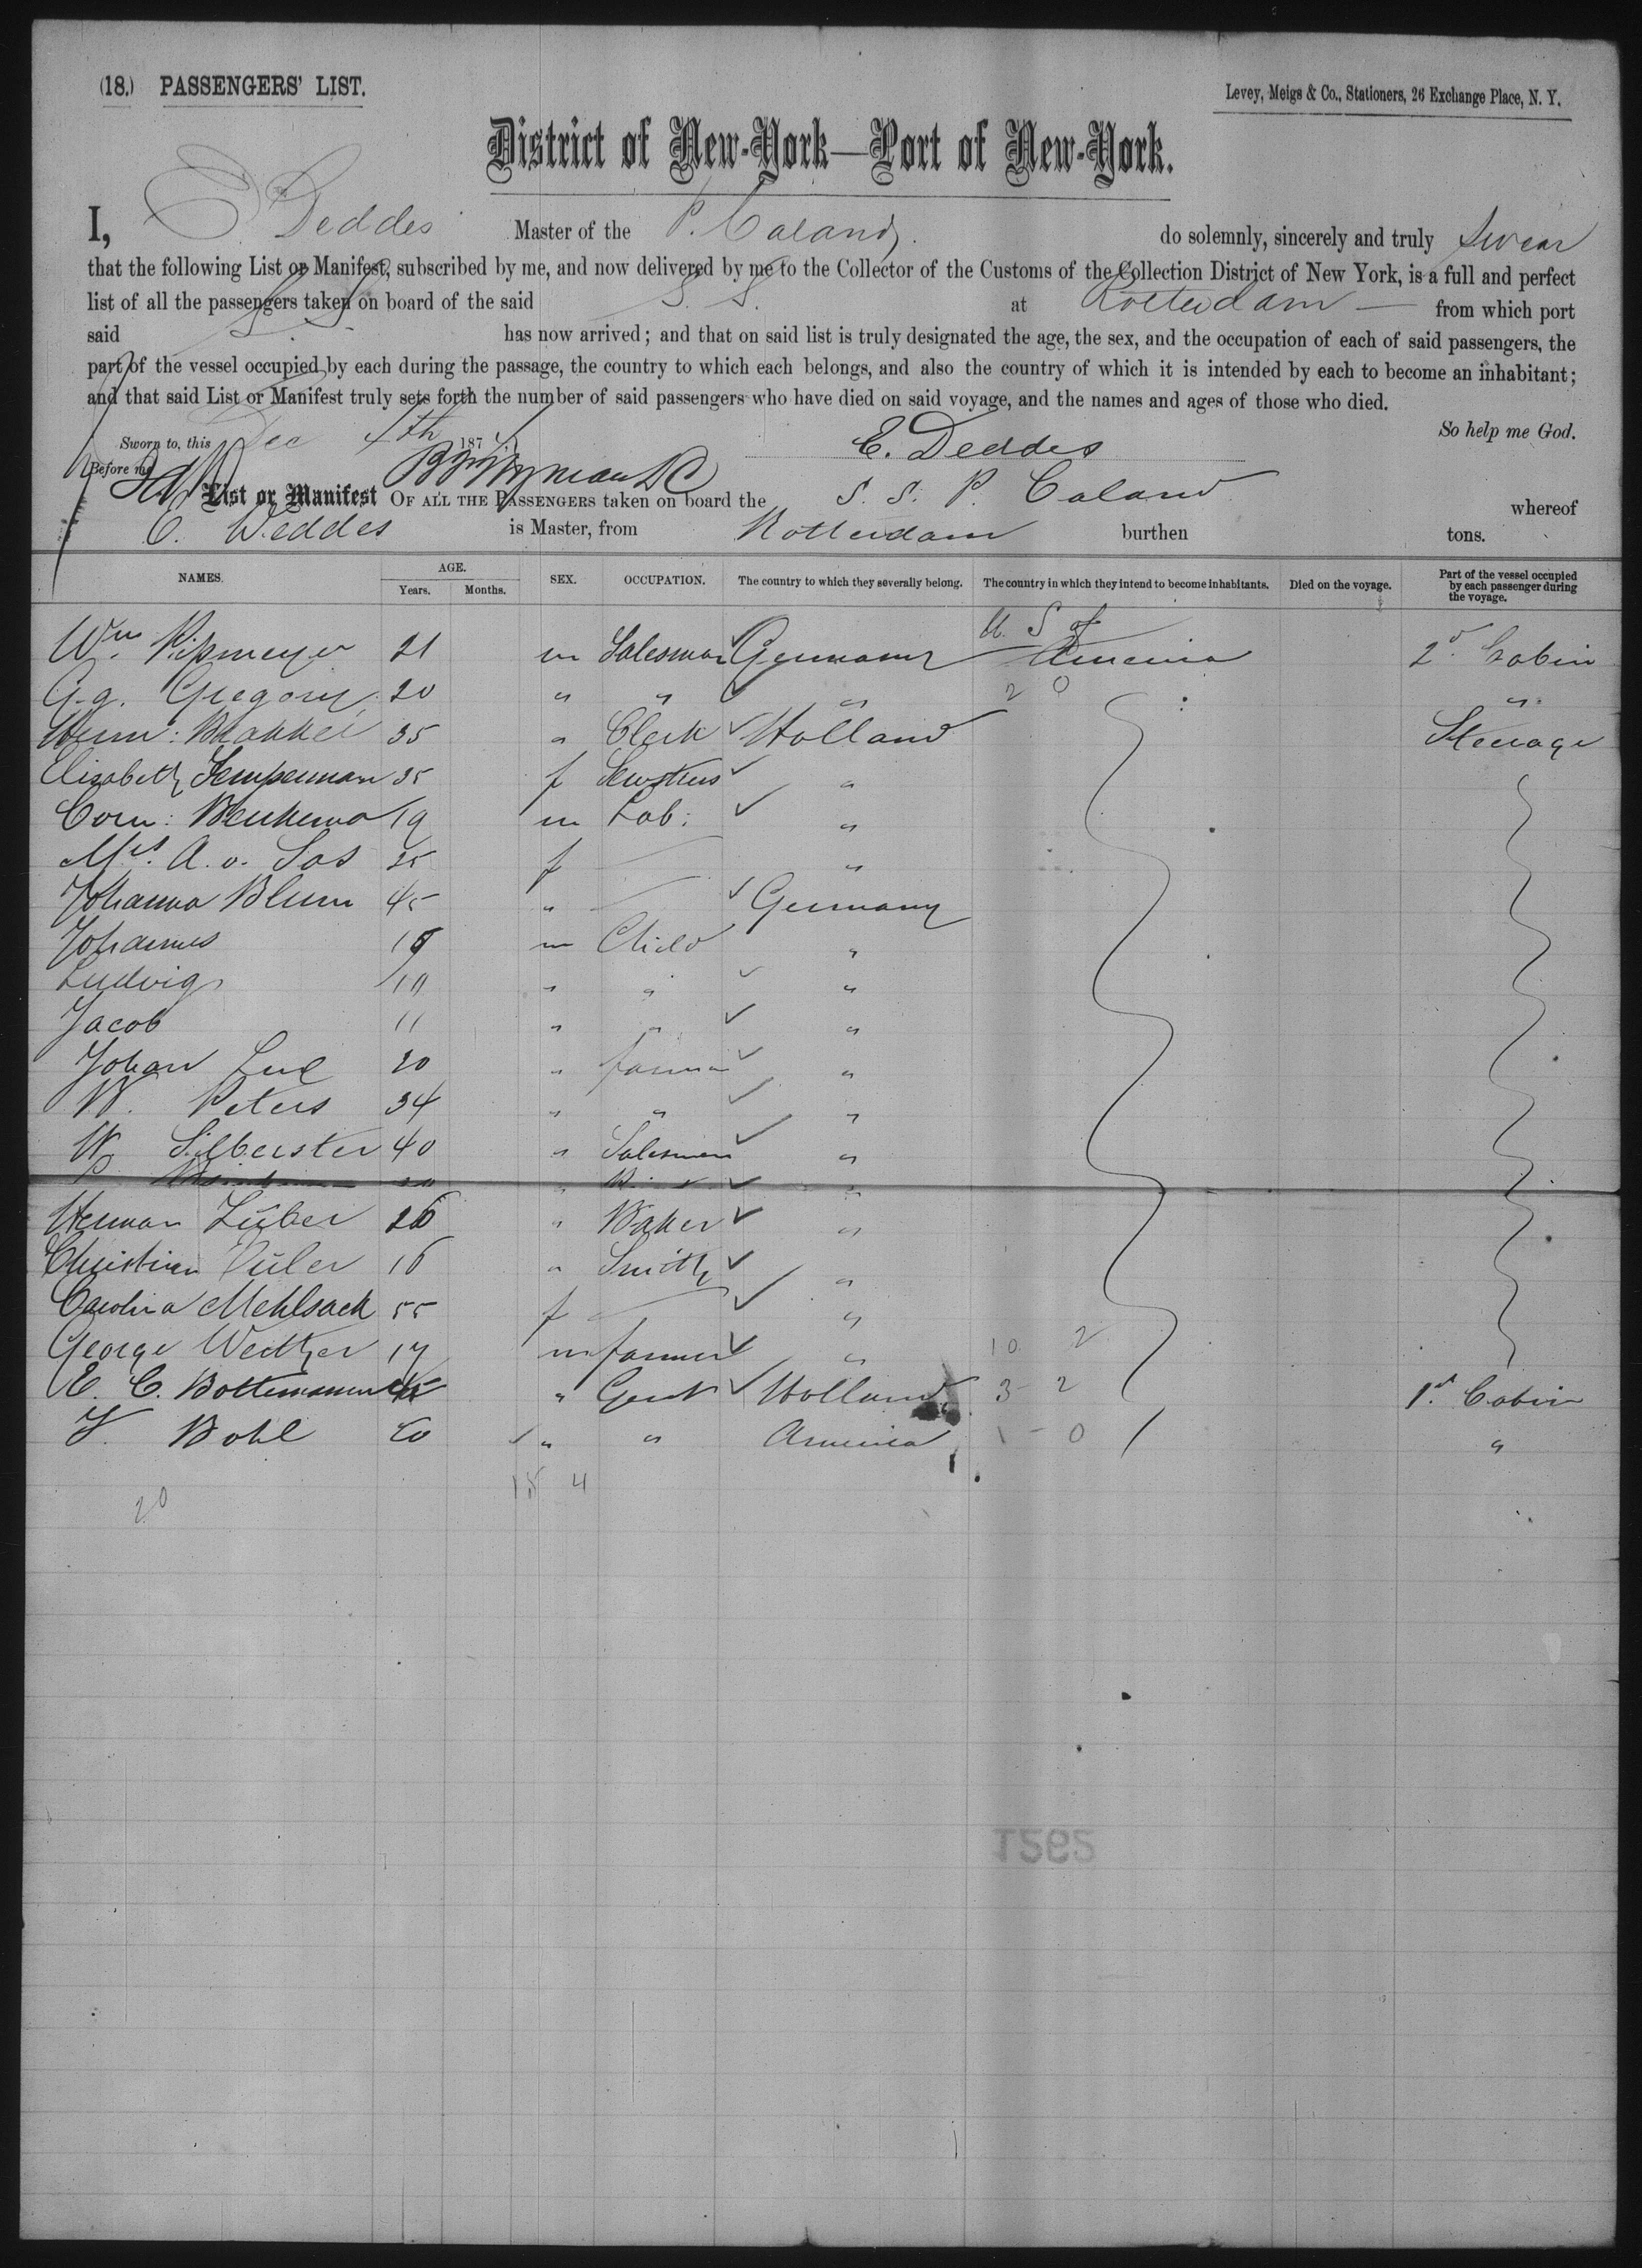 (18.) PASSENGERS' LIST.
Levey, Meigs & Co., Stationers, 26 Exchange Place, N. Y.
District of New-York—Port of New-York.
I, E Deddes Master of the P. Caland do solemnly, sincerely and truly swear
that the following List or Manifest, subscribed by me, and now delivered by me to the Collector of the Customs of the Collection District of New York, is a full and perfect
list of all the passengers taken on board of the said S. S. at Rotterdam — from which port
said S. S. has now arrived; and that on said list is truly designated the age, the sex, and the occupation of each of said passengers, the
part of the vessel occupied by each during the passage, the country to which each belongs, and also the country of which it is intended by each to become an inhabitant;
and that said List or Manifest truly sets forth the number of said passengers who have died on said voyage, and the names and ages of those who died.
So help me God.
Sworn to, this Dec 4th 187
E. Deddes
Before me
List or Manifest OF ALL THE PASSENGERS taken on board the S. S. P. Caland whereof
E. Deddes is Master, from Rotterdam burthen tons.
NAMES. AGE. Years. Months. SEX. OCCUPATION. The country to which they severally belong. The country in which they intend to become inhabitants. Died on the voyage. Part of the vessel occupied by each passenger during the voyage.
Wm. Pipmeyer 21 m Salesman Germany U. S. of America 2d. Cabin
G. g. Gregory 20 " " " 2 0 "
Herm: Bakker 35 " Clerk Holland Steerage
Elizabeth Semperman 35 f "
Corn: Beukema 19 m Lab: "
Mrs. A. v. Sas 25 f "
Johanna Blum 45 " Germany
Johannes m Child "
Ludwig " " "
Jacob 11 " " "
Johan 20 " farmer "
W. Peters 34 " " "
W Silberster 40 " Salesman "
Herman Züber 26 " Baker "
Christian 16 " Smith "
Carolina Mehlsack 55 f "
George 17 m farmer " 10 2
E. C. " Gent Holland 3 2 1st. Cabin
J. Bohl " " America 1 - 0 "
15 4
20
1592